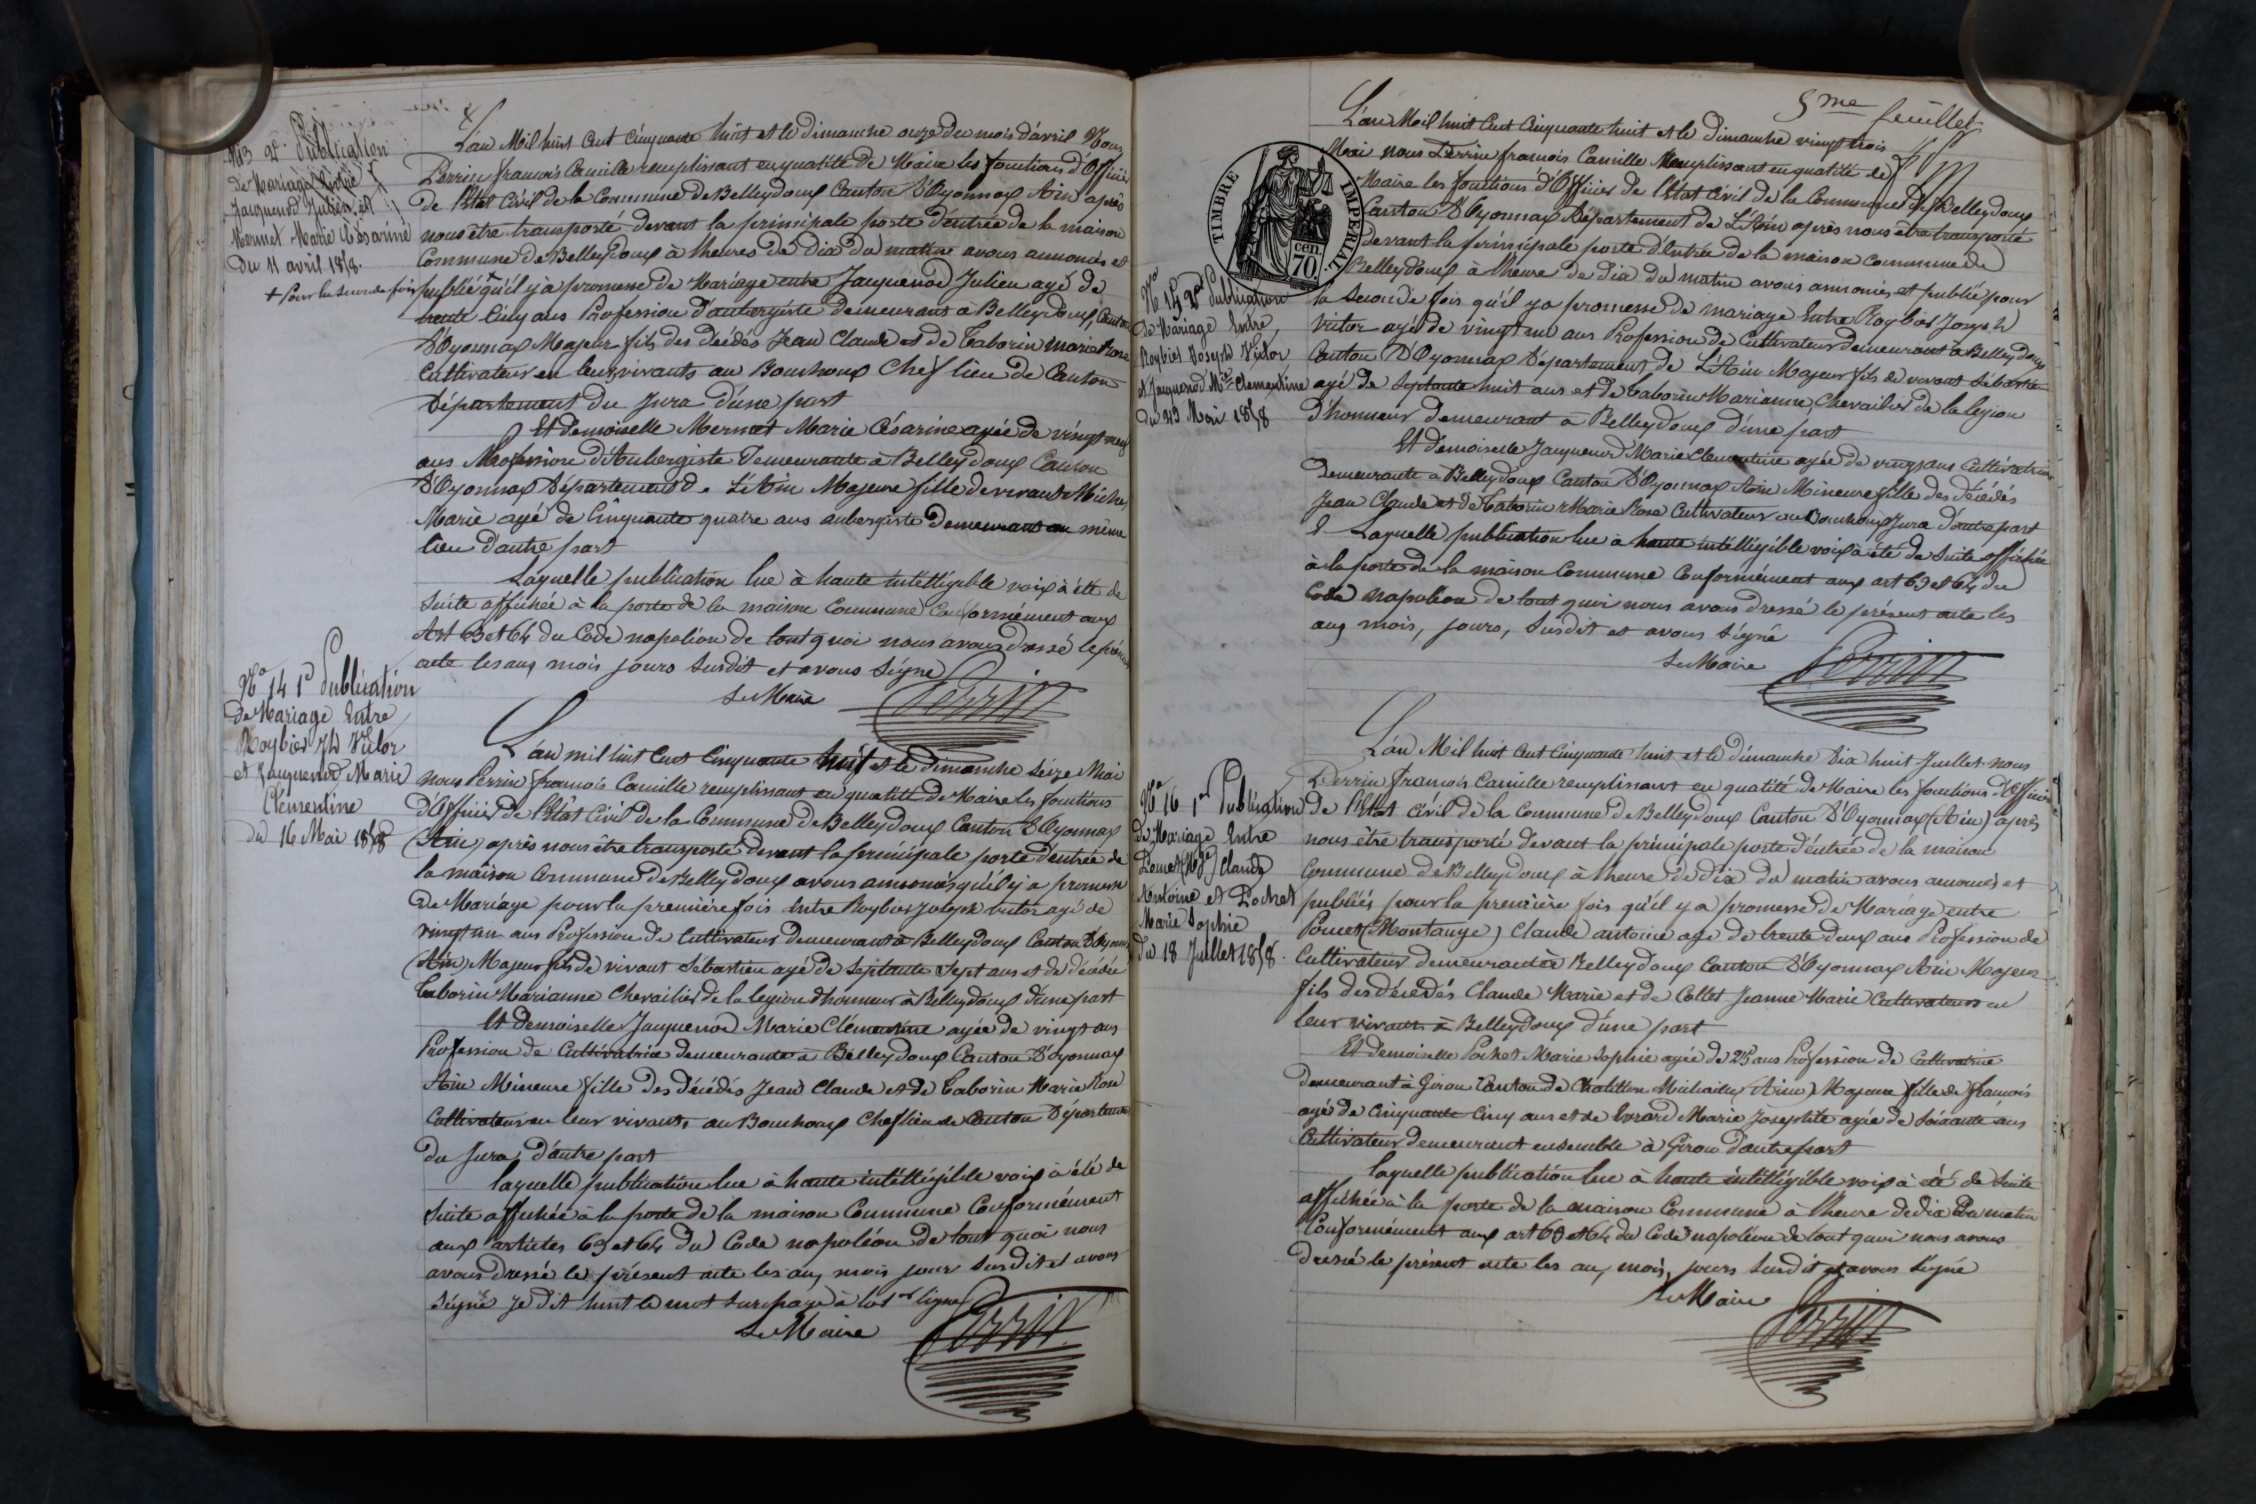 N° 13 2e Publication
de Mariage Entre
Jacquenod Julien et
Mermet Marie Césarine
Du 11 avril 1858.
+ pour la seconde fois
L'an Mil huit Cent Cinquante huit et le dimanche onze du mois d'avril Nous
Perrin françois Camille remplissant en qualité de Maire les fonctions d'Officier
de l'état Civil de la Commune de Belleydoux Canton D'Oyonnax Ain après
nous être transporté devant la principale porte d'entrée de la maison
Commune de Belleydoux à l'heures de dix du matin avons annoncés et
publié + qu'il y a promesse de Mariage entre Jacquenod Julien agé de
trente Cinq ans Profession d'aubergiste demeurant à Belleydoux, Canton
D'Oyonnax Majeur fils des décédés Jean Claude et de Taborin Marie Rose
Cultivateur en leur vivants au Bouchoux Chef lieu de Canton
Département du Jura d'une part
Et demoiselle Mermet Marie Césarine agée de vingt neuf
ans Profession d'Aubergiste Demeurante à Belleydoux Canton
D'Oyonnax Département de L'Ain Majeure fille de vivant Michel
Marie agé de Cinquante quatre ans aubergiste demeurant au même
lieu d'autre part
Laquelle publication lue à haute intélligible voix à été de
Suite affichée à la porte de la maison Commune Conformément aux
Art 63 et 64 du Code napoléon de tout quoi nous avons dressé le présent
acte les an, mois jours Susdit et avons Signé
Le Maire
Perrin
N° 14 1e Publication
de Mariage Entre
Roybier Jh Victor
et Jacquenod Marie
Clémentine
du 16 Mai 1858
L'an mil huit Cent Cinquante huit et le dimanche Seize Mai
nous Perrin françois Camille remplissant en qualité de Maire les fonctions
d'Officier de l'état Civil de la Commune de Belleydoux Canton D'Oyonnax
(Ain) après nous être transporté devant la principale porte d'entrée de
la maison Commune de Belleydoux avons annoncés qu'il y a promesse
de Mariage pour la première fois Entre Roybier Joseph victor agé de
vingt un ans Profession de Cultivateur demeurant à Belleydoux Canton D'Oyonnax
(Ain) Majeur fils de vivant Sébastien agé de Septante Sept ans et de décédée
Taborin Marianne Chevailier de la légion d'honneur à Belleydoux d'une part
Et demoiselle Jacquenod Marie Clémentine agée de vingt ans
Profession de Cultivatrice demeurante à Belleydoux Canton D'oyonnax
Ain Mineure fille des décédés Jean Claude et de Taborin Marie Rose
Cultivateur en leur vivants au Bouchoux Chef lieu de Canton Département
du Jura d'autre part
laquelle publication lue à haute intélligible voix à été de
Suite affichée à la porte de la maison Commune Conformément
aux articles 63 et 64 du Code napoléon de tout quoi nous
avons dressé le présent acte les an, mois jour Susdit et avons
Signé Je dit huit le mot Surchargé à la 1ere ligne
Le Maire
Perrin
5me feuillet
TIMBRE IMPÉRIAL
cen 70.
N° 15 2e Publication
de Mariage Entre,
Roybier Joseph Victor
et Jacquenod Mie Clementine
du 23 Mai 1858
L'an Mil huit Cent Cinquante huit et le dimanche vingt trois
Mai nous Perrin françois Camille Remplissant en qualité de
Maire les fonctions d'Officier de l'état Civil de la Commune de Belleydoux
Canton D'Oyonnax Département de L'Ain après nous être transporté
devant la principale porte d'Entrée de la maison Commune de
Belleydoux à l'heure de dix du matin avons annoncés et publié pour
la Seconde fois qu'il y a promesse de mariage Entre Roybier Joseph
Victor agé de vingt un ans Profession de Cultivateur demeurant à Belleydoux
Canton D'Oyonnax Département de L'Ain Majeur fils de vivant Sébastien
agé de Septante huit ans et de Taborin Marianne, Chevailier de la légion
d'honneur demeurant à Belleydoux d'une part
Et demoiselle Jacquenod Marie Clementine agée de vingt ans Cultivatrice
demeurante à Belleydoux Canton D'Oyonnax Ain Mineure fille des décédés
Jean Claude et de Taborin Marie Rose Cultivateur au Bouchoux Jura d'autre part
Laquelle publication lue à haute intélligible voix à été de Suite affichée
à la porte de la maison Commune Conformément aux art 63 et 64 du
Code napoléon de tout quoi nous avons dressé le présent acte les
an, mois, jours, Susdit et avons Signé
Le Maire
Perrin
N° 16 1re Publication
de Mariage Entre
Poncet Claude
Antoine et Pochet
Marie Sophie
du 18 Juillet 1858.
L'an Mil huit Cent Cinquante huit et le dimanche Dix huit Juillet nous
Perrin françois Camille remplissant en qualité de Maire les fonctions d'Officier
de l'état Civil de la Commune de Belleydoux Canton D'Oyonnax (Ain) après
nous être transporté devant la principale porte d'entrée de la maison
Commune de Belleydoux à l'heure de dix du matin avons annoncés et
publiés pour la première fois qu'il y a promesse de Mariage entre
Poncet (Montange) Claude antoine agé de trente deux ans Profession de
Cultivateur demeurant à Belleydoux Canton D'Oyonnax Ain Majeur
fils des décédés Claude Marie et de Collet Jeanne Marie Cultivateurs en
leur vivants à Belleydoux d'une part
Et demoiselle Pochet Marie Sophie agée de 25 ans Profession de Cultivatrice
Demeurant à Giron Canton de Chatillon Michaille (Ain) Majeure fille de françois
agé de Cinquante Cinq ans et de Evrard Marie Josephte agée de Soixante ans
Cultivateur demeurant ensemble à Giron d'autre part
laquelle publication lue à haute intélligible voix à été de Suite
affichée à la porte de la maison Commune à l'heure de dix du matin
Conformément aux art 63 et 64 du Code napoléon de tout quoi nous avons
dressé le présent acte les an, mois, jours Susdit et avons Signé
Le Maire
Perrin